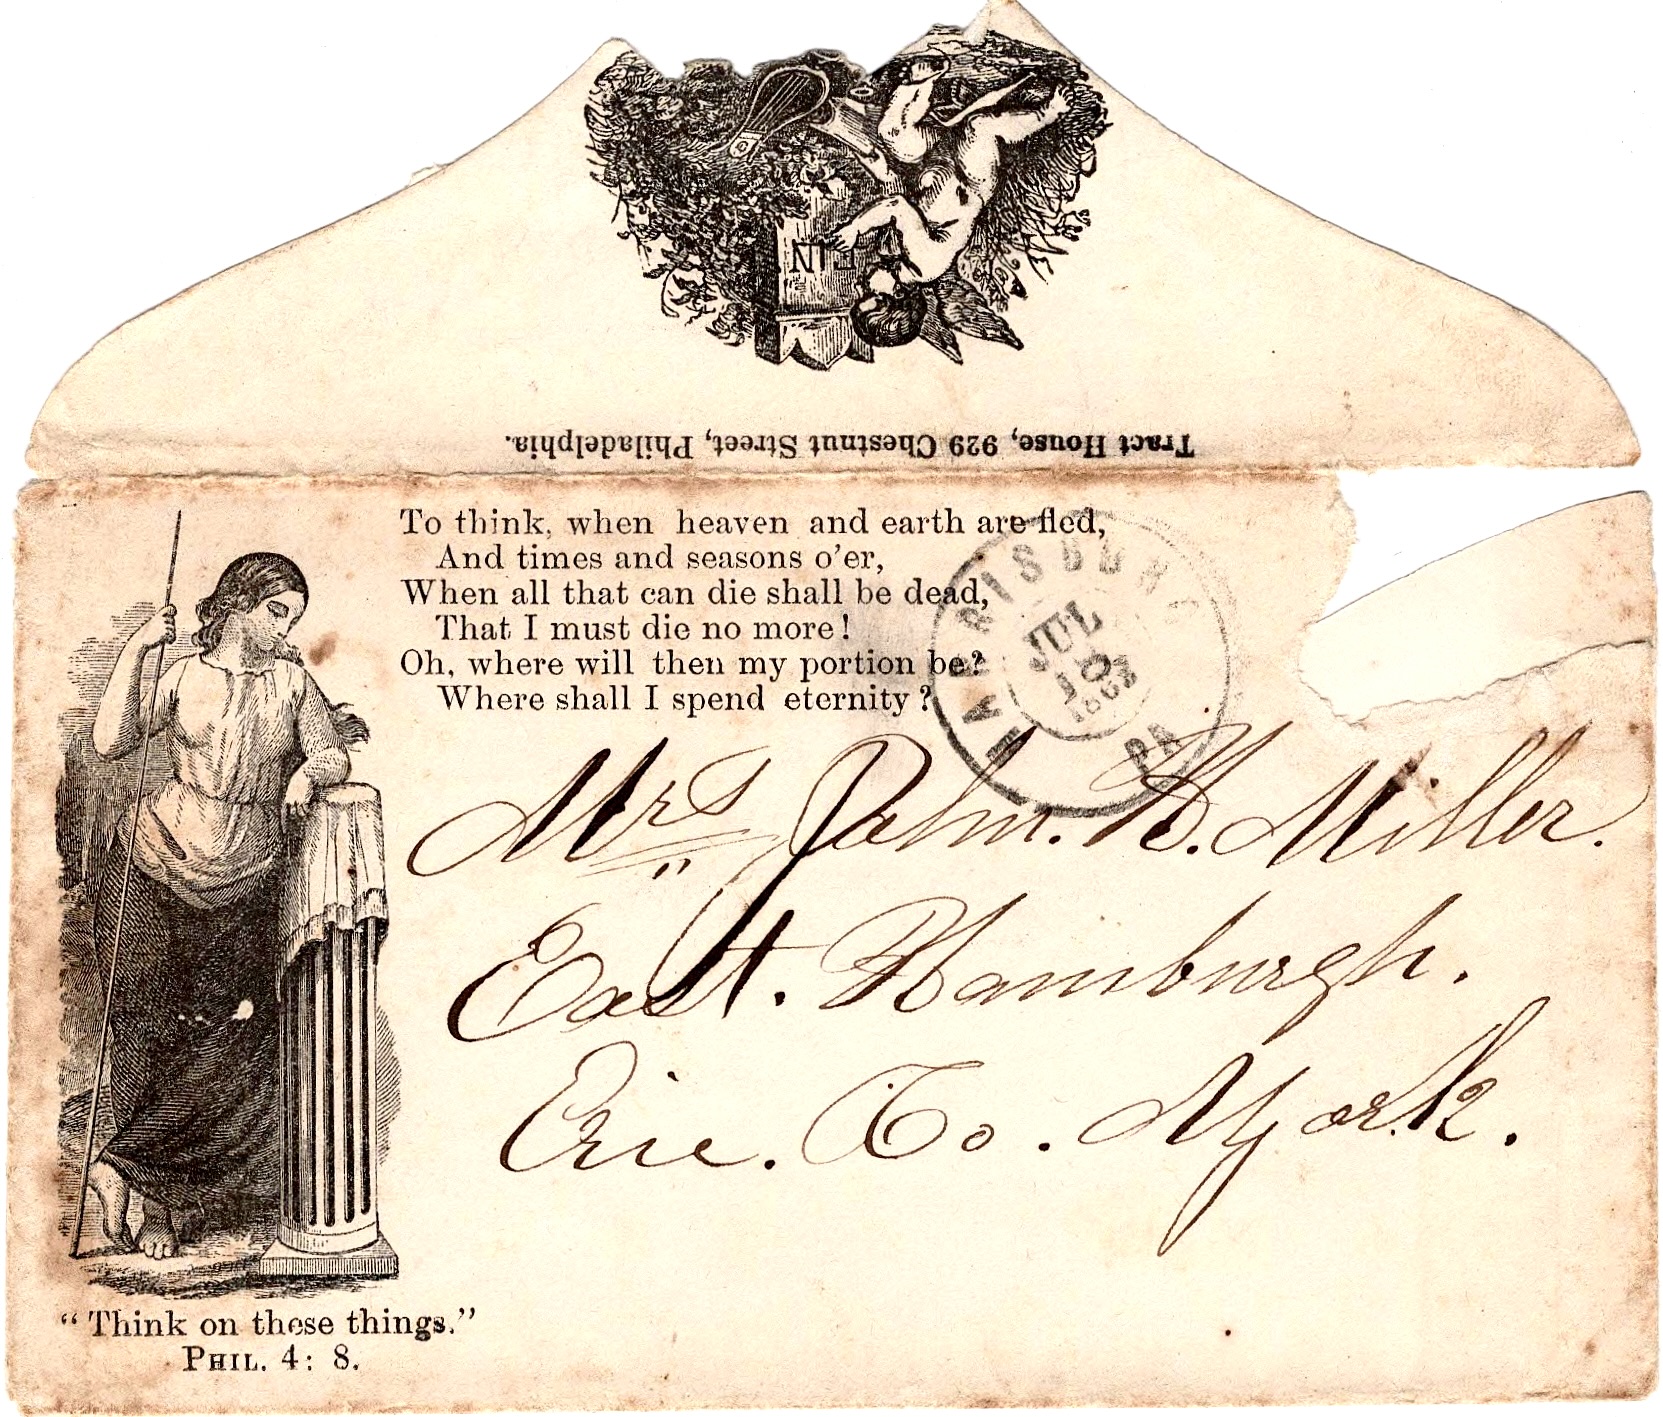 Tract House, 929 Chestnut Street, Philadelphia.
To think, when heaven and earth are fled,
And times and seasons o'er,
When all that can die shall be dead,
That I must die no more!
Oh, where will then my portion be?
Where shall I spend eternity?
HARRISBURG
JUL
10
1863
PA
Mrs John. H. Miller.
East. Hamburgh.
Erie. Co. N York.
"Think on these things."
PHIL. 4: 8.